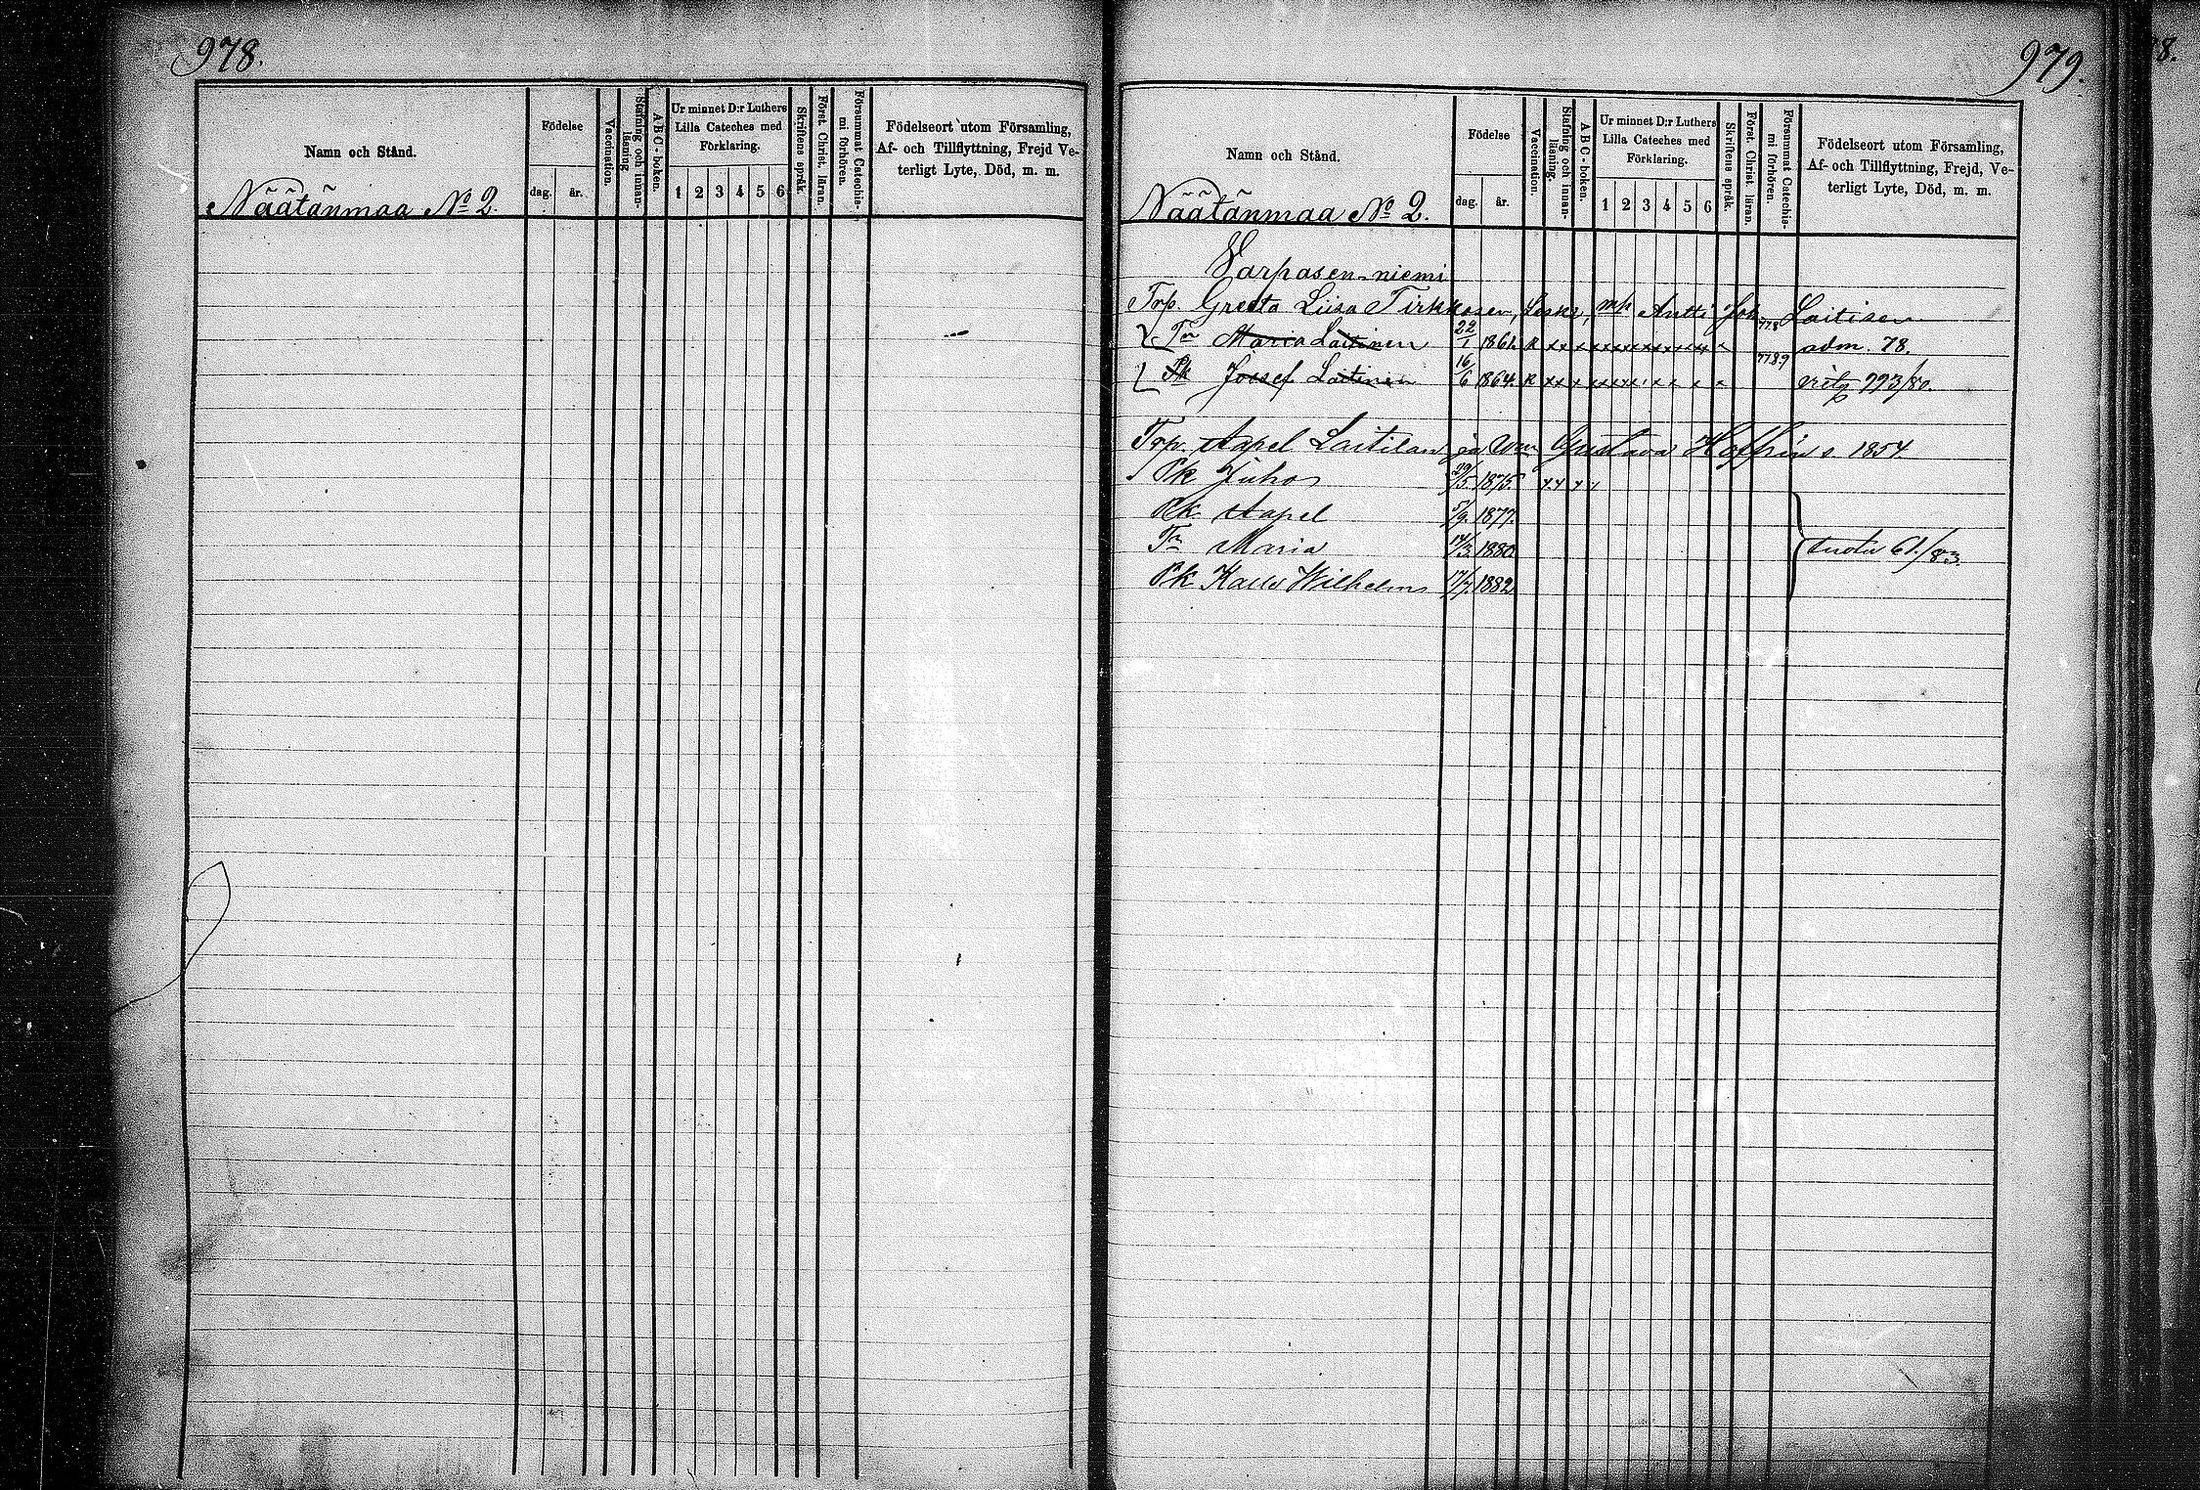 978.
Namn och Stånd.
Näätänmaa No 2.
Födelse
dag. år.
Vaccination.
Stafning och innan-läsning
A B C - boken.
Ur minnet D:r Luthers
Lilla Cateches med
Förklaring.
1 2 3 4 5 6
Skriftens språk.
Först. Christ. läran.
Försummat Catechis-mi förhören.
Födelseort utom Församling,
Af- och Tillflyttning, Frejd Ve-
terligt Lyte, Död, m. m.
979.
8.
Namn och Stånd.
Näätänmaa No 2.
Födelse
dag. år.
Vaccination.
Stafning och innan-läsning.
A B C - boken.
Ur minnet D:r Luthers
Lilla Cateches med
Förklaring.
1 2 3 4 5 6
Skriftens språk.
Först. Christ. läran.
Försummat Catechis-mi förhören.
Födelseort utom Församling,
Af- och Tillflyttning, Frejd, Ve-
terligt Lyte, Död, m. m.
Varpasen-niemi
Trp. Greeta Liisa Tirkkosen, Leski, mp Antti Joh. Laitisen
Tr Maria Laitinen 22/1 1861. R x x x x x x x x x x x x 778 adm. 78.
Pk Joosef Laitinen 16/6 1864. R x x x x x x x x x x 7789 993/80.
Trp. Aapel Laitilan ja Wm Gustava Hoffrin s. 1854
Pk Juho 29/5 1875. x x x x
Pk Aapel 5/9 1877.
Tr Maria 14/3 1880.
Pk Kalle Wilhelm 17/7 1882
61/83.